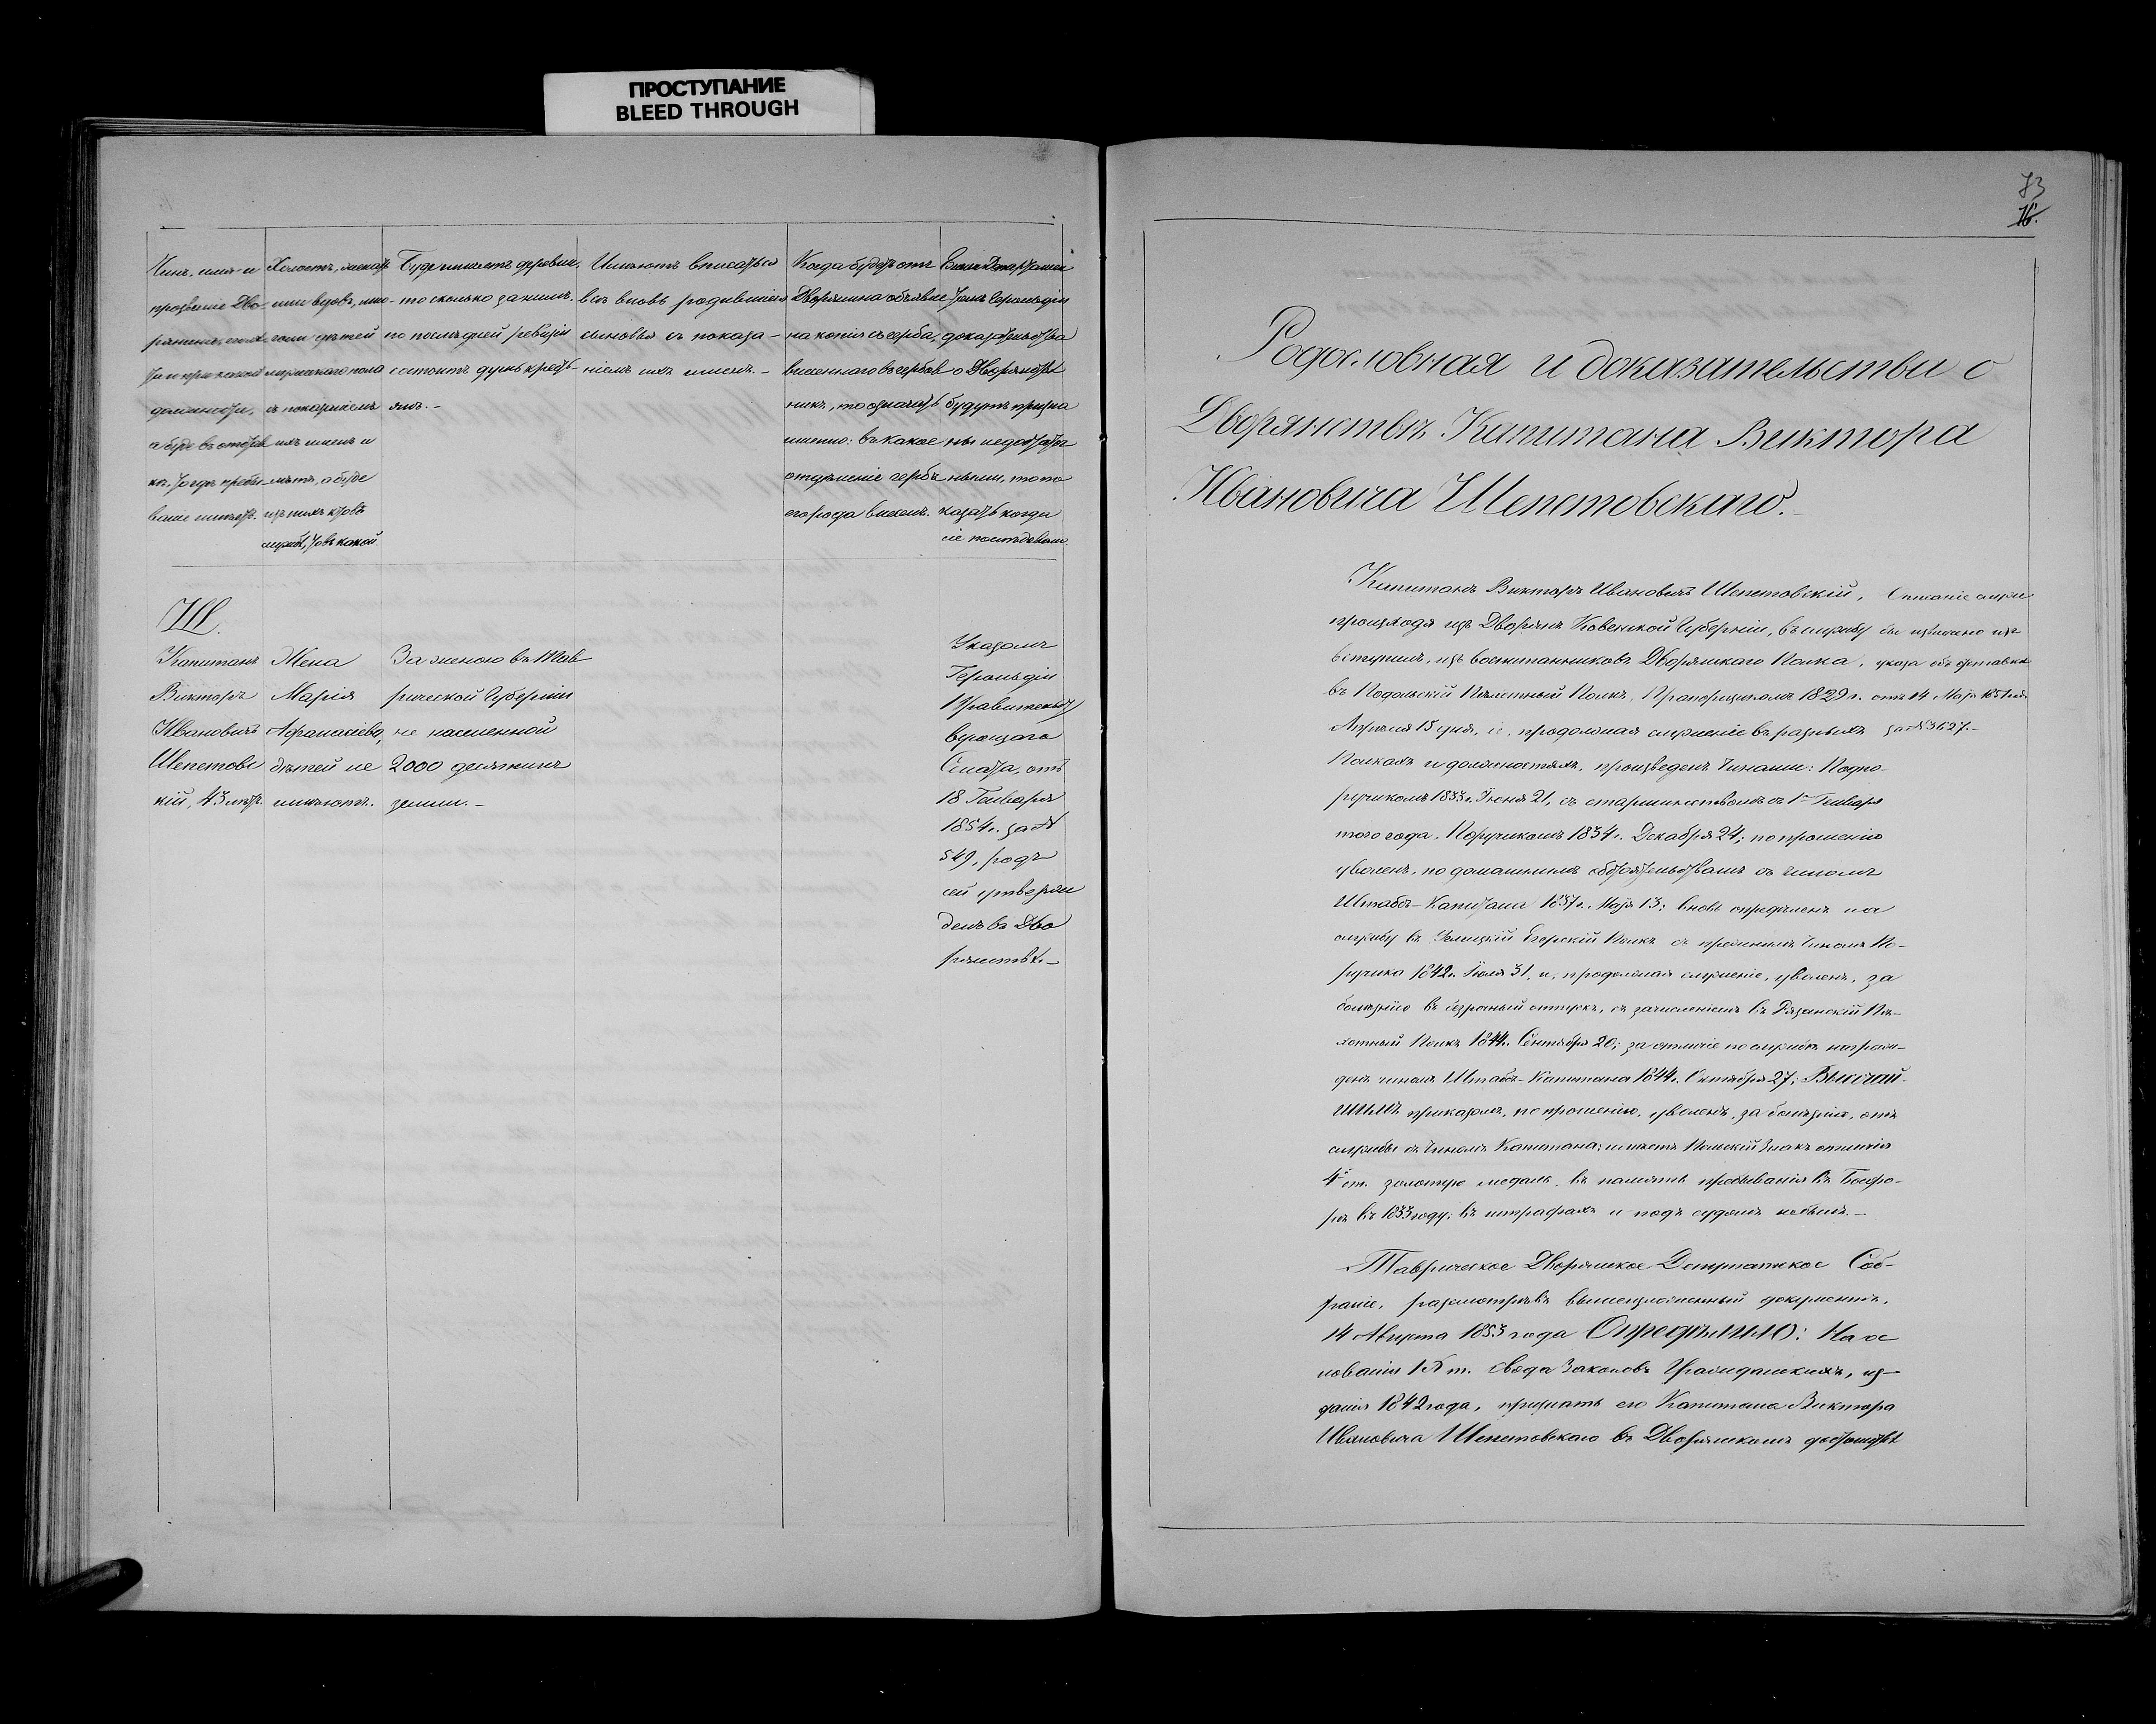 ПРОСТУПАНИЕ
BLEED THROUGH
Чинъ, имя и
прозваніе Дво-
рянина, его лѣ
та и при какой
должности,
а буде въ отстав
кѣ, то гдѣ пребы-
ваніе имѣетъ.
Холостъ, женатъ
или вдовъ, ско-
лько дѣтей
мужескаго пола
съ показаніемъ
ихъ именъ и
лѣтъ, а буде
изъ нихъ кто въ
службѣ, то въ какой
Буде имѣетъ деревни,
то сколько за нимъ
по послѣдней ревизіи
состоитъ душъ кресть-
янъ.-
Имѣютъ вписаться
всѣ вновь родившіеся
сыновья съ показа-
ніемъ ихъ именъ.-
Когда будетъ отъ
Дворянина объявле
на копія съ герба,
внесеннаго въ гербов
никъ, то означать
именно: въ какое
отдѣленіе гербъ
его рода внесенъ.
Если Департамен
томъ Герольдіи
доказательства
о Дворянствѣ
будутъ призна
ны недостаточ
ными, то по
казать когда
сіе послѣдовало.
Ш.
Капитанъ
Викторъ
Ивановичъ
Шепетовс
кій, 43 лѣтъ.
Жена
Марія
Афанасіева,
дѣтей не
имѣютъ.
За женою въ Тав
рической Губерніи
не населенной
2000 десятинъ
земли.-
Указомъ
Герольдіи
Правительст
вующаго
Сената, отъ
18 Генваря
1854 г. за №
549, родъ
сей утверж
денъ въ Дво
рянствѣ.-
73
16.
Родословная и доказательства о
Дворянствѣ Капитана Виктора
Ивановича Шепетовскаго.-
Капитанъ Викторъ Ивановичъ Шепетовскій,
происходя изъ Дворянъ Ковенской Губерніи, въ службу
вступилъ, изъ воспитанниковъ Дворянскаго Полка,
въ Подольскій Пѣхотный Полкъ, Прапорщикомъ 1829 г.
Апрѣля 15 дня, и, продолжая служеніе въ разныхъ
Полкахъ и должностяхъ, произведенъ Чинами: Подпо-
ручикомъ 1833 г. Іюня 21, съ старшинствомъ съ 1го Генваря
того года. Поручикомъ 1834 г. Декабря 24; по прошенію
уволенъ, по домашнимъ обстоятельствамъ съ чиномъ
Штабсъ-Капитана 1837 г. Мая 13; вновь опредѣленъ на
службу въ Углицкій Егерскій Полкъ съ прежнимъ Чиномъ По-
ручика 1842 г. Іюля 31, и, продолжая служеніе, уволенъ, за
болѣзнію въ безсрочный отпускъ, съ зачисленіемъ въ Рязанскій Пѣ-
хотный Полкъ 1844 г. Сентября 20; за отличіе по службѣ награж-
денъ чиномъ Штабсъ-Капитана 1844 г. Октября 27; Высочай-
шимъ приказомъ, по прошенію, уволенъ, за болѣзнію, отъ
службы съ Чиномъ Капитана; имѣетъ Польскій Знакъ отличія
4й ст. золотую медаль, въ память пребыванія въ Босфо-
рѣ въ 1833 году; въ штрафахъ и подъ судомъ небылъ.-
Описаніе служ
бы извлечено изъ
указа объ отставкѣ
отъ 14 Мая 1851 года
за № 3627.-
Таврическое Дворянское Депутатское Соб-
раніе, разсмотрѣвъ вышеизложенный документъ,
14 Августа 1853 года Опредѣлило: На ос
нованіи IX т. Свода Законовъ Гражданскихъ, из-
данія 1842 года, признать его Капитана Виктора
Ивановича Шепетовскаго въ Дворянскомъ достоинствѣ